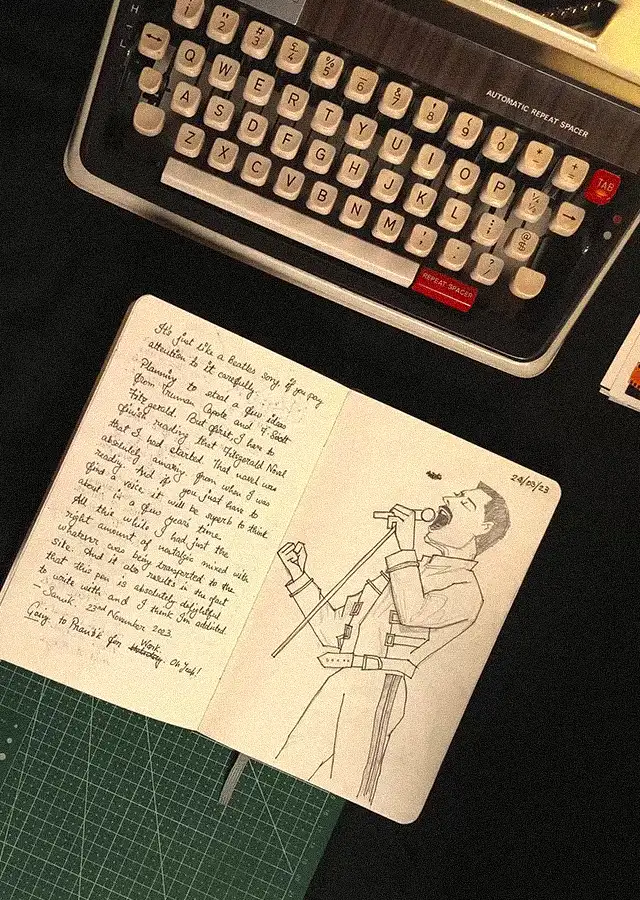 AUTOMATIC REPEAT SPACER
" # % & ' ( ) *
2 3 4 5 6 7 8 9 0 -
Q W E R T Y U I O P
TAB
A S D F G H J K L
@ $
Z X C V B N M , . ? /
REPEAT SPACER
It's just like a Beatles song if you pay
attention to it carefully.
Planning to steal a few ideas
from Truman Capote and F. Scott
Fitzgerald. But first, I have to
finish reading that Fitzgerald Novel
that I had started. That novel was
absolutely amazing from when I was
reading. And if you just have to
find a voice it will be superb to think
about is a few years time.
All this while I had just the
right amount of nostalgic mixed with
whatever was being transported to the
site. And it also results in the fact
that this pen is absolutely delightful
to write with and I think I'm addicted.
23rd November 2023
Going to for Work. Oh Yeah!
29/03/23